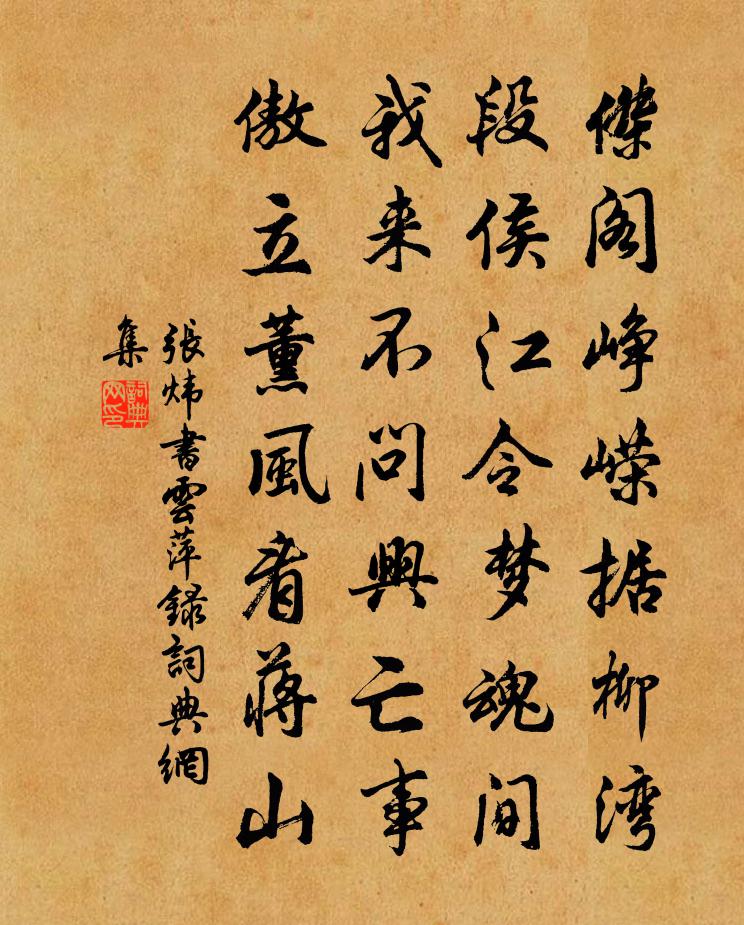 傑阁峥嵘据柳湾
段侯江令梦魂间
我来不问興亡事
傲立薰風看蒋山
張炜書雲萍録詞典網
集
詞典网印